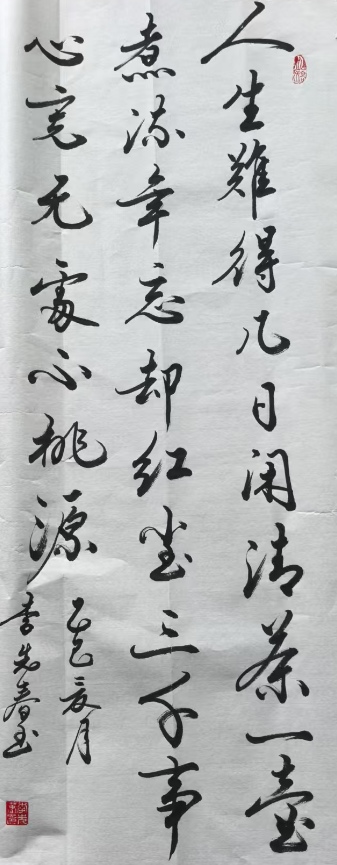 人生難得几日闲清茶一壺
煮流年忘却红塵三千事
心寬无處不桃源
乙巳夏月
李先春书